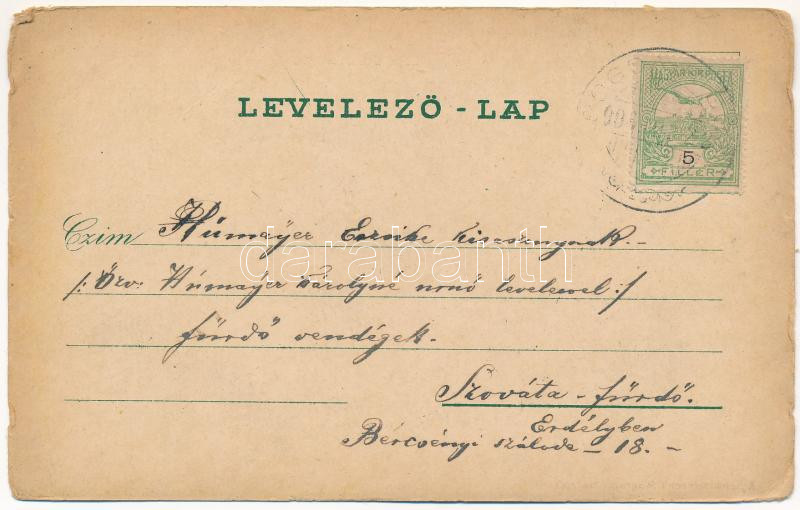 LEVELEZŐ - LAP
MAGYAR KIR. POSTA
5
FILLÉR
Czim Húmayer Eszike kisasszonynak. -
/: Özv: Húmayer Károlyné nonó levelével :/
fürdő vendégek.
Szováta - fürdő.
Erdélyben
Bercsényi szálode - 18. -
darabanth